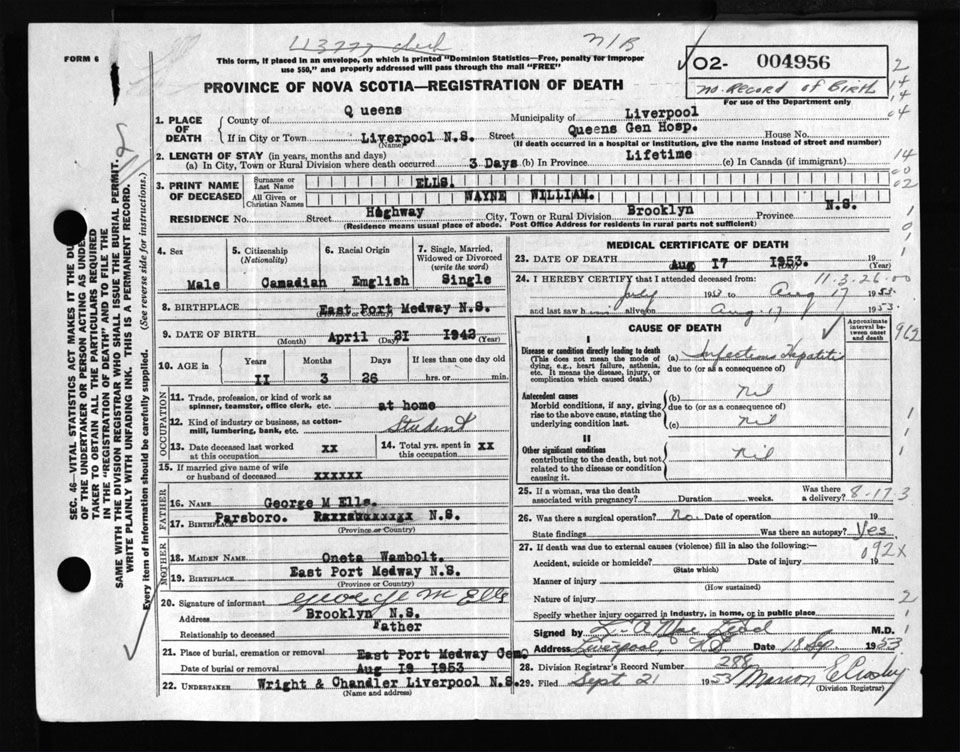 FORM 6
N/B
This form, if placed in an envelope, on which is printed "Dominion Statistics—Free, penalty for improper
use $50," and properly addressed will pass through the mail "FREE"
O2- 004956
no Record of Birth
For use of the Department only
PROVINCE OF NOVA SCOTIA—REGISTRATION OF DEATH
1. PLACE OF DEATH
County of Queens Municipality of Liverpool
If in City or Town Liverpool N.S. Street Queens Gen Hosp. House No.
(Name) (If death occurred in a hospital or institution, give the name instead of street and number)
2. LENGTH OF STAY (in years, months and days)
(a) In City, Town or Rural Division where death occurred 3 Days (b) In Province Lifetime (c) In Canada (if immigrant)
3. PRINT NAME OF DECEASED
Surname or Last Name ELLS.
All Given or Christian Names WAYNE WILLIAM.
RESIDENCE No. Street Highway City, Town or Rural Division Brooklyn Province N.S.
(Residence means usual place of abode. Post Office Address for residents in rural parts not sufficient)
4. Sex Male
5. Citizenship (Nationality) Canadian
6. Racial Origin English
7. Single, Married, Widowed or Divorced (write the word) Single
8. BIRTHPLACE East Port Medway N.S.
(Province or Country)
9. DATE OF BIRTH April 21 1942
(Month) (Day) (Year)
10. AGE in Years Months Days If less than one day old
II 3 26 hrs. or min.
OCCUPATION
11. Trade, profession, or kind of work as spinner, teamster, office clerk, etc. at home
12. Kind of industry or business, as cotton-mill, lumbering, bank, etc. Student
13. Date deceased last worked at this occupation xx
14. Total yrs. spent in this occupation xx
15. If married give name of wife or husband of deceased xxxxxx
FATHER
16. NAME George M Ells.
17. BIRTHPLACE Parsboro. N.S.
(Province or Country)
MOTHER
18. MAIDEN NAME Oneta Wambolt.
19. BIRTHPLACE East Port Medway N.S.
(Province or Country)
20. Signature of informant George M Ells
Address Brooklyn N.S.
Relationship to deceased Father
21. Place of burial, cremation or removal East Port Medway Cem.
Date of burial or removal Aug 19 1953
22. UNDERTAKER Wright & Chandler Liverpool N.S.
(Name and address)
MEDICAL CERTIFICATE OF DEATH
23. DATE OF DEATH Aug I7 1953. 19
(Day) (Year)
24. I HEREBY CERTIFY that I attended deceased from: 11-3-26
July 1953 to Aug 17 1953.
and last saw him alive on Aug. 17 1953
CAUSE OF DEATH
Approximate interval between onset and death
I
Disease or condition directly leading to death
(This does not mean the mode of dying, e.g., heart failure, asthenia, etc. It means the disease, injury, or complication which caused death.)
(a) Infectious Hepatitis
due to (or as a consequence)
Antecedent causes
Morbid conditions, if any, giving rise to the above cause, stating the underlying condition last.
(b) Nil
due to (or as a consequence)
(c) Nil
II
Other significant conditions
contributing to the death, but not related to the disease or condition causing it.
nil
25. If a woman, was the death associated with pregnancy? Duration weeks. Was there a delivery? 8-17-3
26. Was there a surgical operation? No. Date of operation 19
State findings Was there an autopsy? Yes.
27. If death was due to external causes (violence) fill in also the following:— 092X
Accident, suicide or homicide? Date of injury 19
(State which)
Manner of injury
(How sustained)
Nature of injury
Specify whether injury occurred in industry, in home, or in public place
Signed by M.D.
Address Liverpool, NS Date 18 1953
28. Division Registrar's Record Number 288
29. Filed Sept 21 1953 Marion E Crosby
(Division Registrar)
SEC. 46—VITAL STATISTICS ACT MAKES IT THE DUTY
OF THE UNDERTAKER OR PERSON ACTING AS UNDER-
TAKER TO OBTAIN ALL THE PARTICULARS REQUIRED
IN THE "REGISTRATION OF DEATH" AND TO FILE THE
SAME WITH THE DIVISION REGISTRAR WHO SHALL ISSUE THE BURIAL PERMIT.
WRITE PLAINLY WITH UNFADING INK. THIS IS A PERMANENT RECORD.
Every item of information should be carefully supplied. (See reverse side for instructions.)